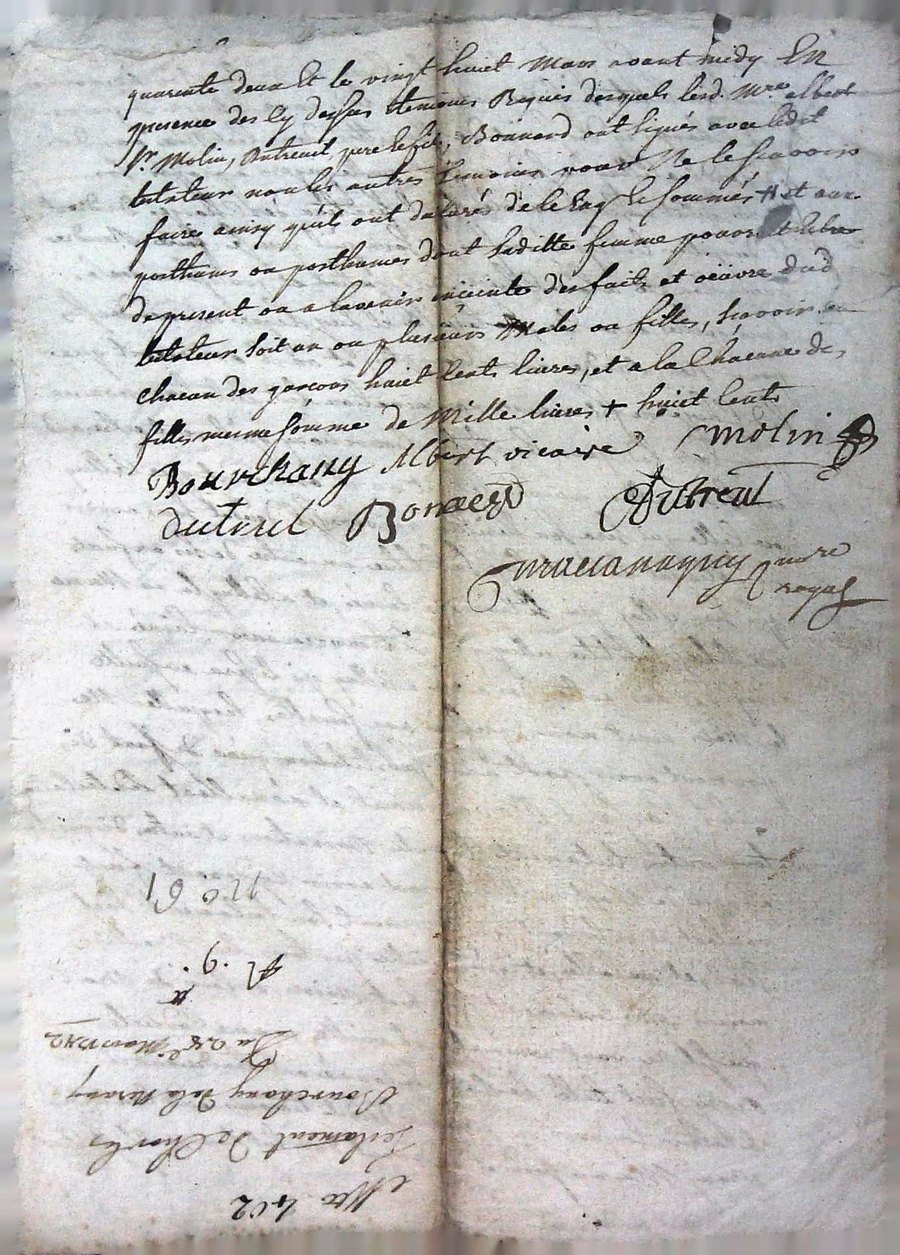 quarente deux Et le vingt huict Mars avant midy En
presence des Cy dessus temoins Requis desquels lesd. Mre albert
Sr Molin, Dutreuil pere Et fils, Bonnard ont signés avec ledit
testateur non les autres temoins pour Ne le sçavoir
faire ainsy qu'ils ont declarés de le Enq. Et sommés # et aux
posthumes ou posthumes dont laditte femme pouroit Estre
de present ou a lavenir enceinte des faits et oeuvre dud
testateur soit un ou plusieurs Males ou filles, sçavoir a
chacun des garçons huict Cents livres, et a la Chacune des
filles mesme somme de Mille livres + huict Cents
Bourchany Albert vicaire Molin
dutreul Bonnard Dutreul
nore
royal
Du 28e Mars 1742
Bourchany
Testament De Charles
402